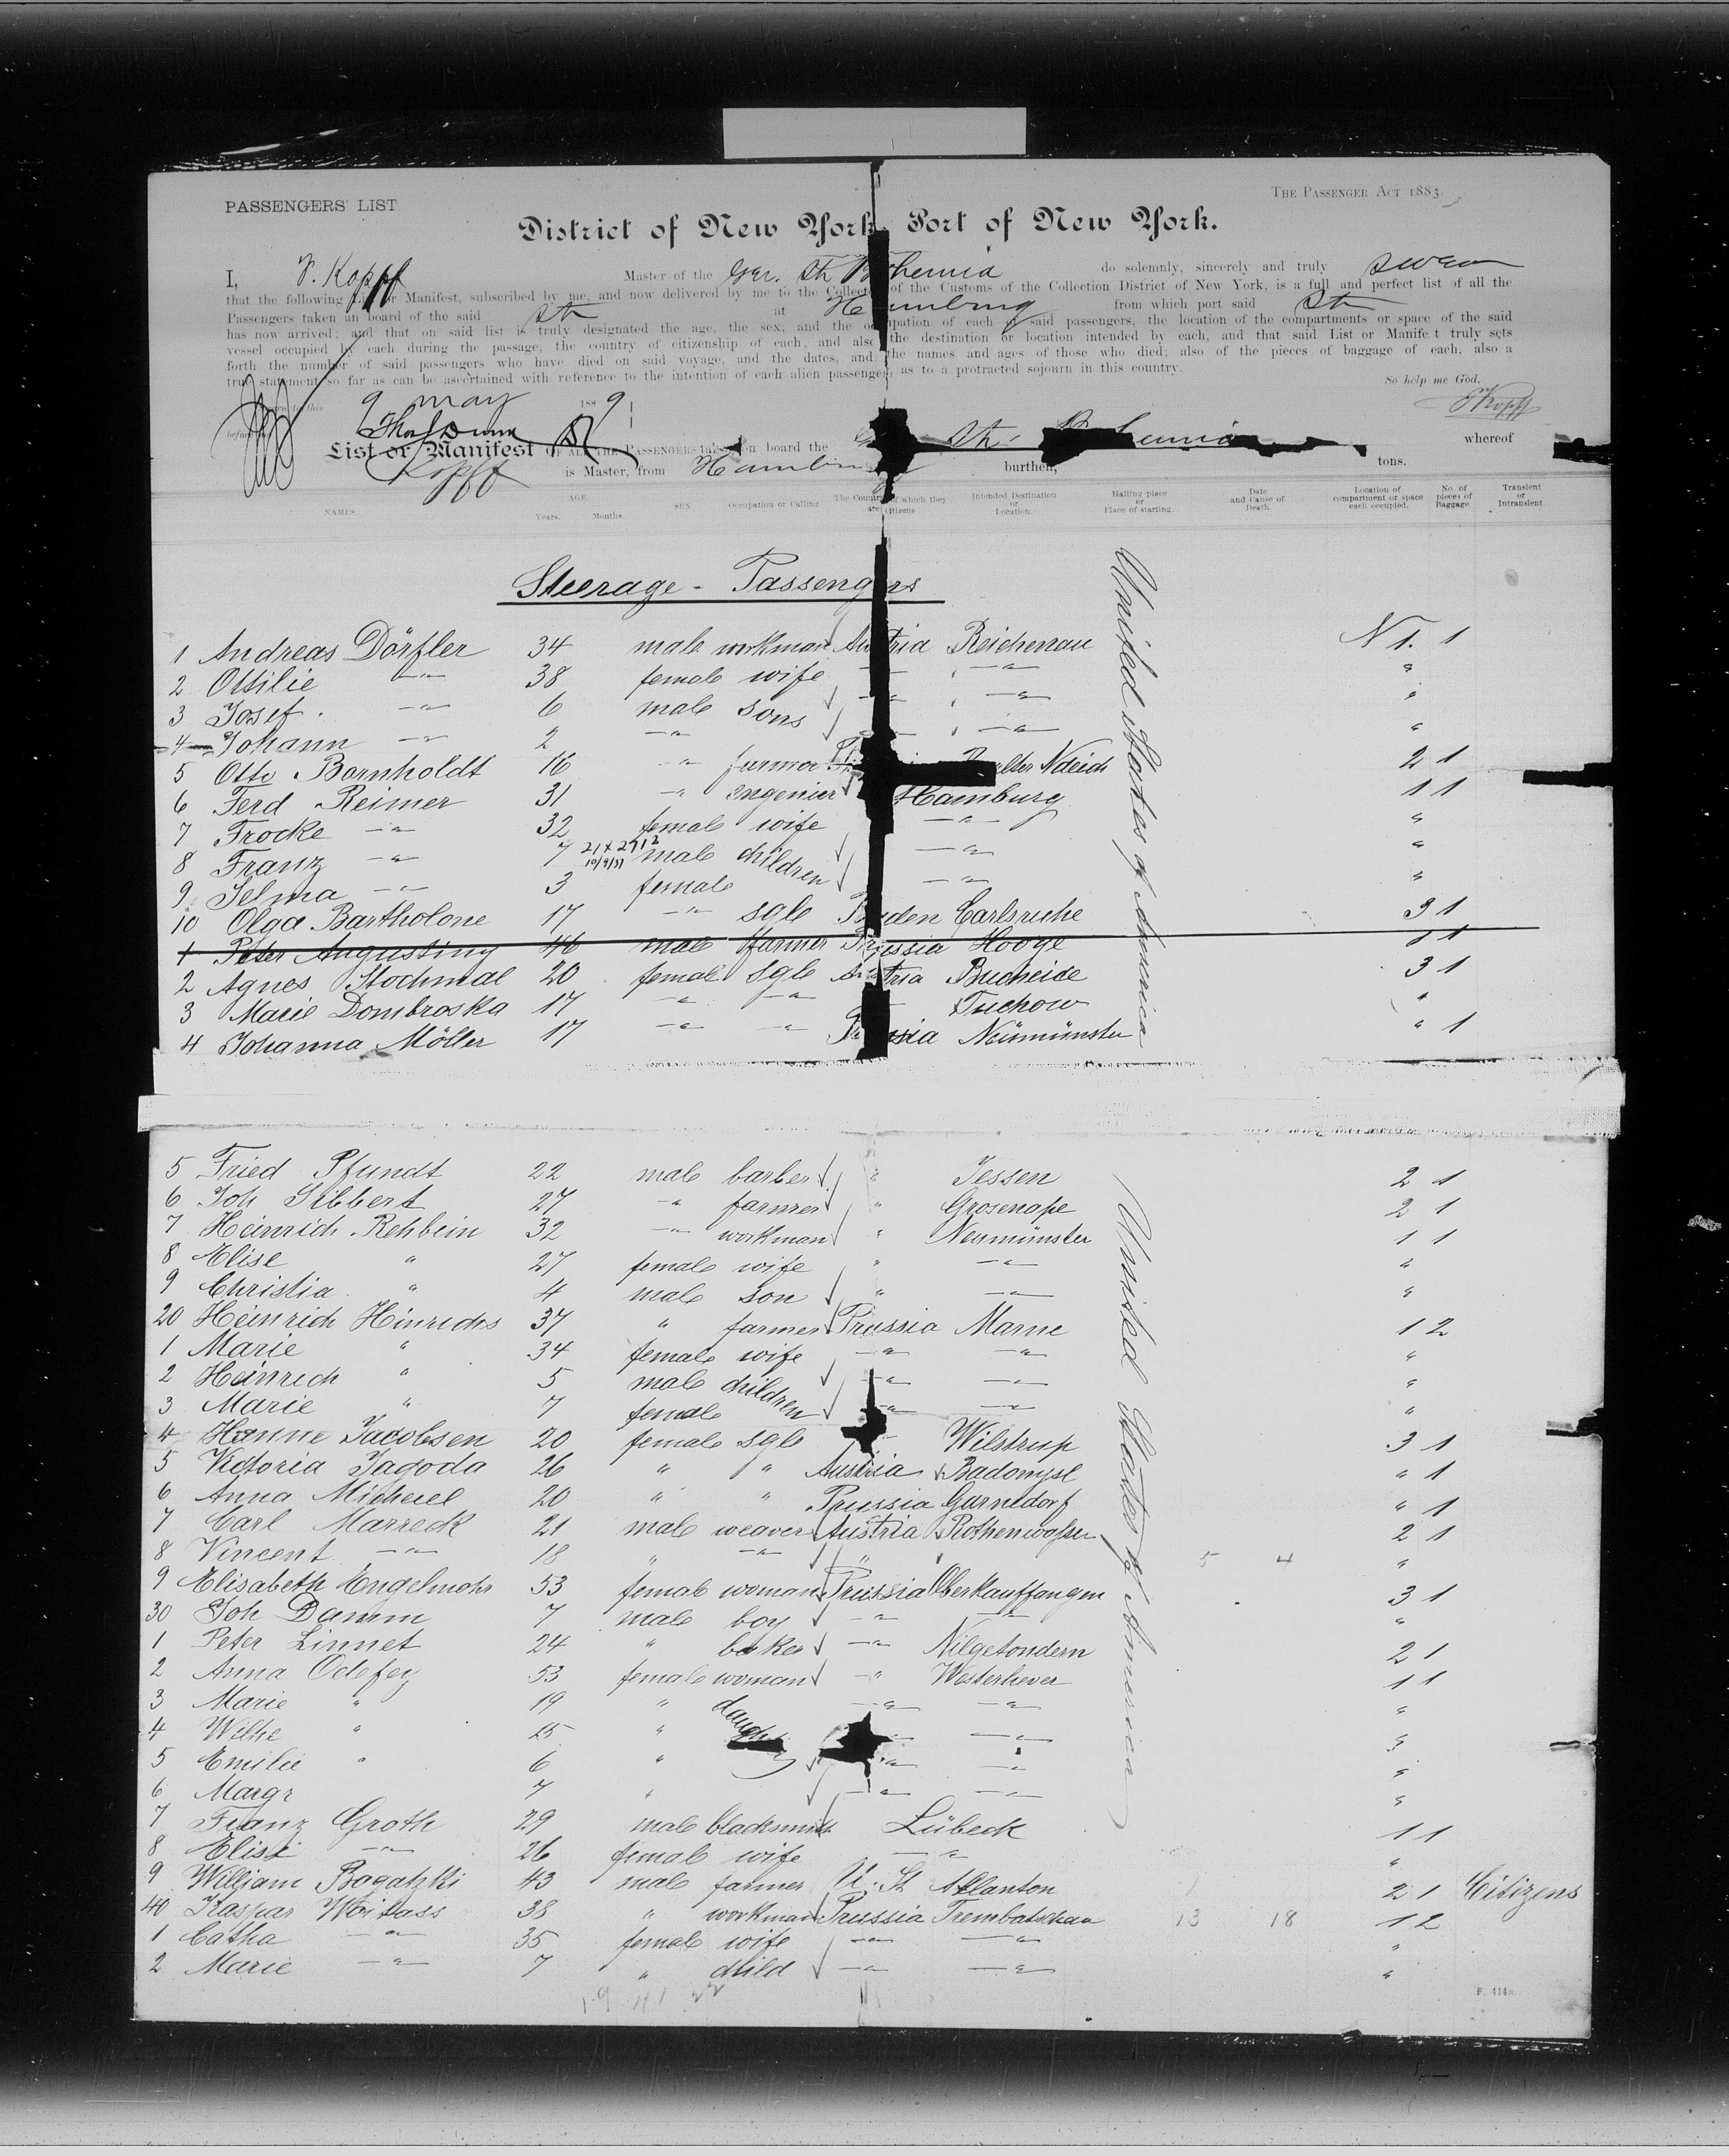 PASSENGERS' LIST.
THE PASSENGER ACT 1883.
District of New York, Port of New York.
I, Kopff Master of the Ger. St. Bohemia do solemnly, sincerely and truly swear
that the following List or Manifest, subscribed by me, and now delivered by me to the Collector of the Customs of the Collection District of New York, is a full and perfect list of all the
Passengers taken on board of the said St at Hamburg from which port said St
has now arrived; and that on said list is truly designated the age, the sex, and the occupation of each of said passengers, the location of the compartments or space of the said
vessel occupied by each during the passage, the country of citizenship of each, and also the destination or location intended by each, and that said List or Manifest truly sets
forth the number of said passengers who have died on said voyage, and the dates, and the names and ages of those who died; also of the pieces of baggage of each, also a
true statement so far as can be ascertained with reference to the intention of each alien passenger as to a protracted sojourn in this country.
So help me God.
to this 9 may 1889
Kopff
List or Manifest OF ALL THE PASSENGERS taken on board the St. Bohemia whereof
Kopff is Master, from Hamburg burthen, tons.
NAMES. AGE. Years. Months. SEX Occupation or Calling The Country of which they are citizens Intended Destination or Location. Halling place or Place of starting. Date and Cause of Death. Location of compartment or space each occupied. No. of pieces of Baggage Transient or Intransient.
Steerage - Passengers
United States of America
1 Andreas Dörfler 34 male workman Austria Reichenau N 1. 1
2 Ottilie -"- 38 female wife -"- "
3 Josef. -"- 6 male sons -"- -"- "
4 Johann -"- 2 -"- -"- "
5 Otto Bornholdt 16 -"- farmer Ndeich 2 1
6 Ferd Reimer 31 -"- engenier Hamburg 1 1
7 Frocke -"- 32 female wife -"- "
8 Franz -"- 7 21X2712 10/9/37 male children -"- "
9 Selma -"- 3 female -"- "
10 Olga Bartholone 17 -"- sgle Baden Carlsruhe 3 1
1 Peter Augustiny 46 male farmer Prussia Hooge 1 1
2 Agnes Stochmal 20 female sgle Austria Bucheide 3 1
3 Marie Dombroska 17 -"- -"- Tuchow "
4 Johanna Möller 17 -"- -"- Prussia Neümünster " 1
5 Fried Pfundt 22 male barber " Jessen 2 1
6 Joh Sibbert 27 " farmer " Grosenape 2 1
7 Heinrich Rehbein 32 -"- workman " Neumünster 1 1
8 Elise " 27 female wife " -"- "
9 Christia " 4 male son " -"- "
20 Heinrich Hinrichs 37 " farmer Prussia Marne 1 2
1 Marie " 34 female wife -"- -"- "
2 Heinrich " 5 male children -"- -"- "
3 Marie " 7 female -"- -"- "
4 Hanne Jacobsen 20 female sgle Wilstrup 3 1
5 Victoria Jagoda 26 " " Austria Radomysl " 1
6 Anna Micheel 20 " " Prussia Garnedorf " 1
7 Carl Marreck 21 male weaver Austria Rothenwasser 2 1
8 Vincent -"- 18 " -"- " " 5 4 "
9 Elisabeth Engelmohr 53 female woman Prussia Oberkauffungen 3 1
30 Joh Damm 7 male boy -"- -"- "
1 Peter Linnet 24 " baker -"- Nilgetondern 2 1
2 Anna Odefey 53 female woman -"- Westerhever 1 1
3 Marie " 19 " daughters -"- -"- "
4 Wilhe " 15 " -"- "
5 Emilie " 6 " -"- -"- "
6 Margr 7 " -"- -"- "
7 Franz Groth 29 male blacksmith Lübeck 1 1
8 Elise -"- 26 female wife -"- "
9 William Bogatzki 43 male farmer U. St Atlanton 2 1 Citizens
40 Kaspar Woitass 38 " workman Prussia Trembatschau 13 18 1 2
1 Catha -"- 35 female wife -"- -"- "
2 Marie -"- 7 " child -"- -"- "
United States of America
F. 414a.